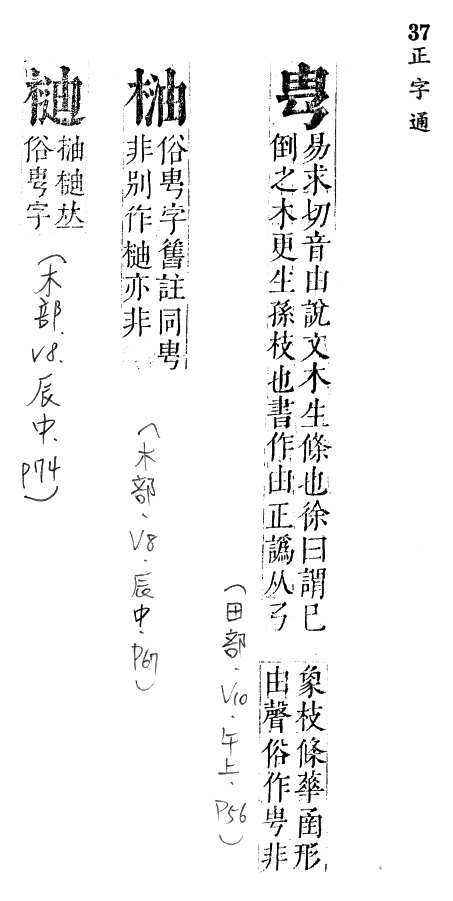 37 正字通
㽕
易求切音由說文木生條也徐曰謂已
倒之木更生孫枝也書作由正譌从𢎘
象枝條華函形
由聲俗作甹非
(田部、V10、午上、P56)
俗㽕字舊註同㽕
非別作亦非
(木部、V8、辰中、P67)
俗㽕字
(木部、V8、辰中、P74)